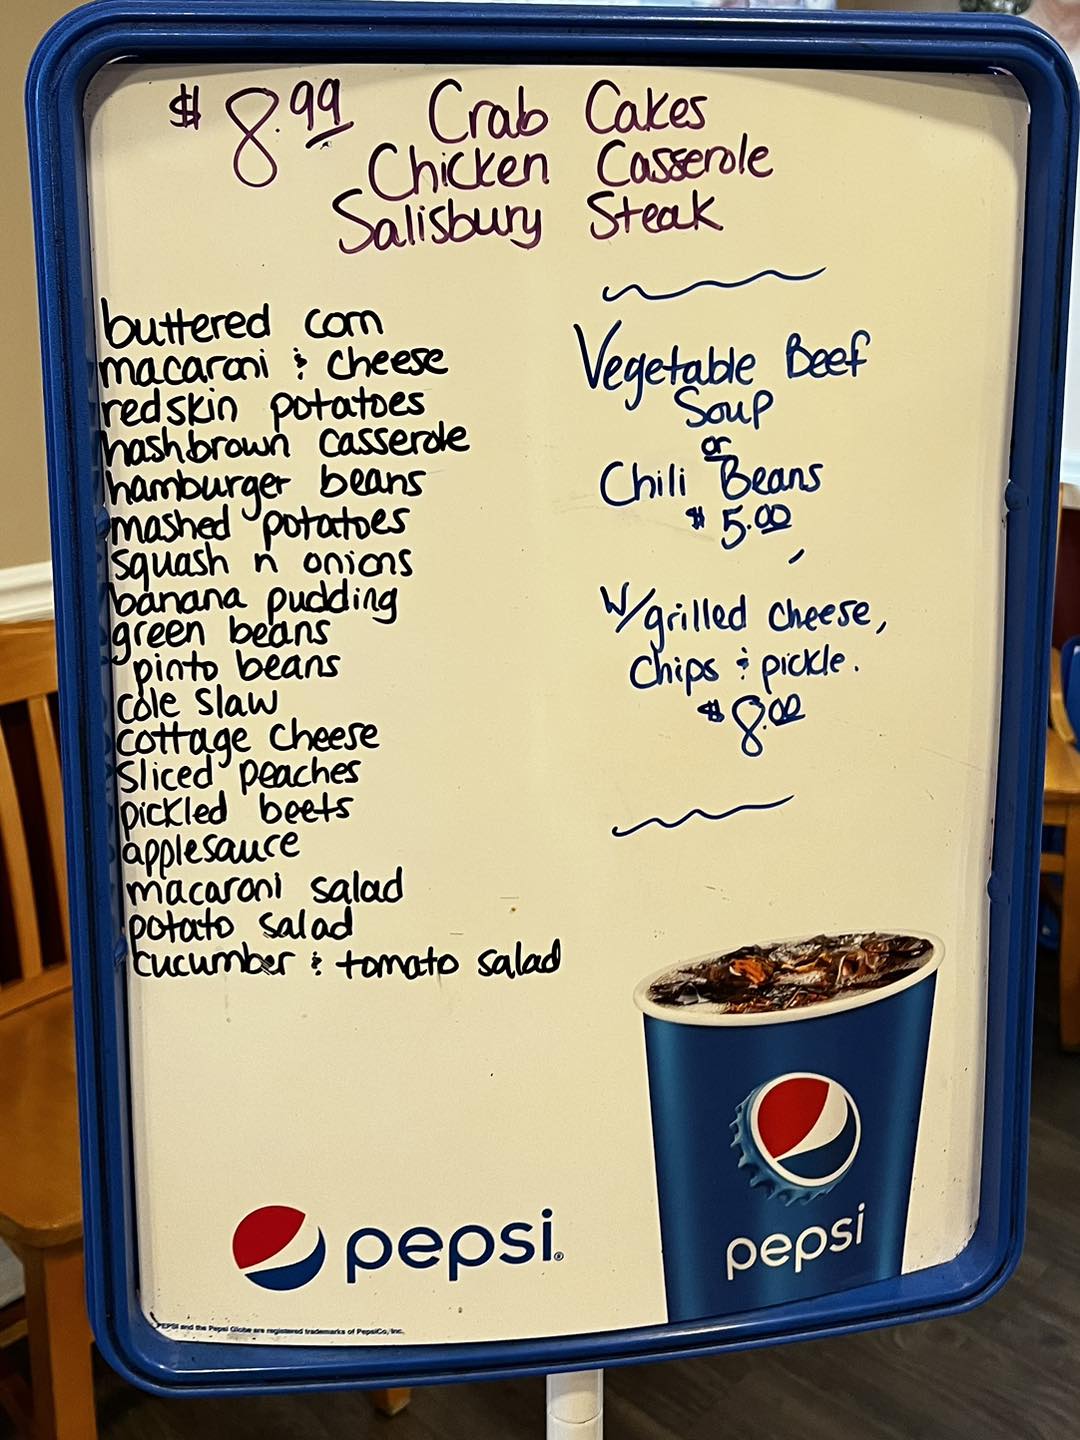 $8.99 Crab Cakes
Chicken Casserole
Salisbury Steak
buttered corn
macaroni & cheese
redskin potatoes
hashbrown casserole
hamburger beans
mashed potatoes
squash n onions
banana pudding
green beans
pinto beans
cole slaw
cottage cheese
sliced peaches
pickled beets
applesauce
macaroni salad
potato salad
cucumber & tomato salad
Vegetable Beef
Soup
or
Chili Beans
$5.00
w/grilled cheese,
chips & pickle.
$8.00
pepsi
pepsi®
PEPSI and the Pepsi Globe are registered trademarks of PepsiCo, Inc.